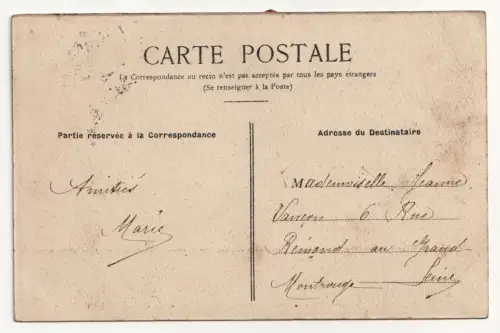 CARTE POSTALE
La Correspondance au recto n'est pas acceptée par tous les pays étrangers
(Se renseigner à la Poste)
Partie réservée à la Correspondance
Amitiés
Marie
Adresse du Destinataire
Mademoiselle Jeanne
6 Rue
Rémond au Grand-
Montrouge Seine